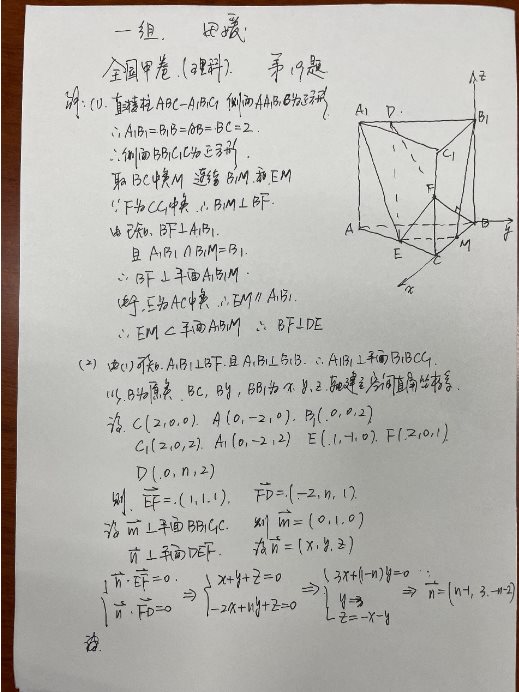 一组.
全国甲卷.(理科). 第19题
(1). 直棱柱ABC-A₁B₁C₁ 侧面AA₁B₁B为正方形
∴A₁B₁=B₁B=AB=BC=2.
∴侧面BB₁C₁C为正方形.
取BC中点M 连结B₁M.和EM
∵F为CC₁中点. ∴B₁M⊥BF.
由已知. BF⊥A₁B₁.
且A₁B₁∩B₁M=B₁.
∴BF⊥平面A₁B₁M.
E为AC中点 ∴EM∥A₁B₁.
∴EM⊂平面A₁B₁M ∴BF⊥DE
A₁ D B₁ z
C₁
F
A B y
E M
C
x
(2) 由(1)可知. A₁B₁⊥BF.且A₁B₁⊥B₁B. ∴A₁B₁⊥平面B₁BCC₁.
以B为原点 BC, By, BB₁为x.y.z.轴建立空间直角坐标系.
设. C(2,0,0). A(0,-2,0) B₁(0,0,2).
C₁(2,0,2). A₁(0,-2,2) E(1,-1,0). F(2,0,1).
D(0,n,2)
则. EF=(1,1,1). FD=(-2,n,1).
设m⊥平面BB₁C₁C. 则m=(0,1,0)
n⊥平面DEF. 设n=(x,y,z)
{n·EF=0. n·FD=0 ⇒ {x+y+z=0 -2x+ny+z=0 ⇒ {3x+(1-n)y=0 y=3 z=-x-y ⇒ n=(n-1, 3, -n-2)